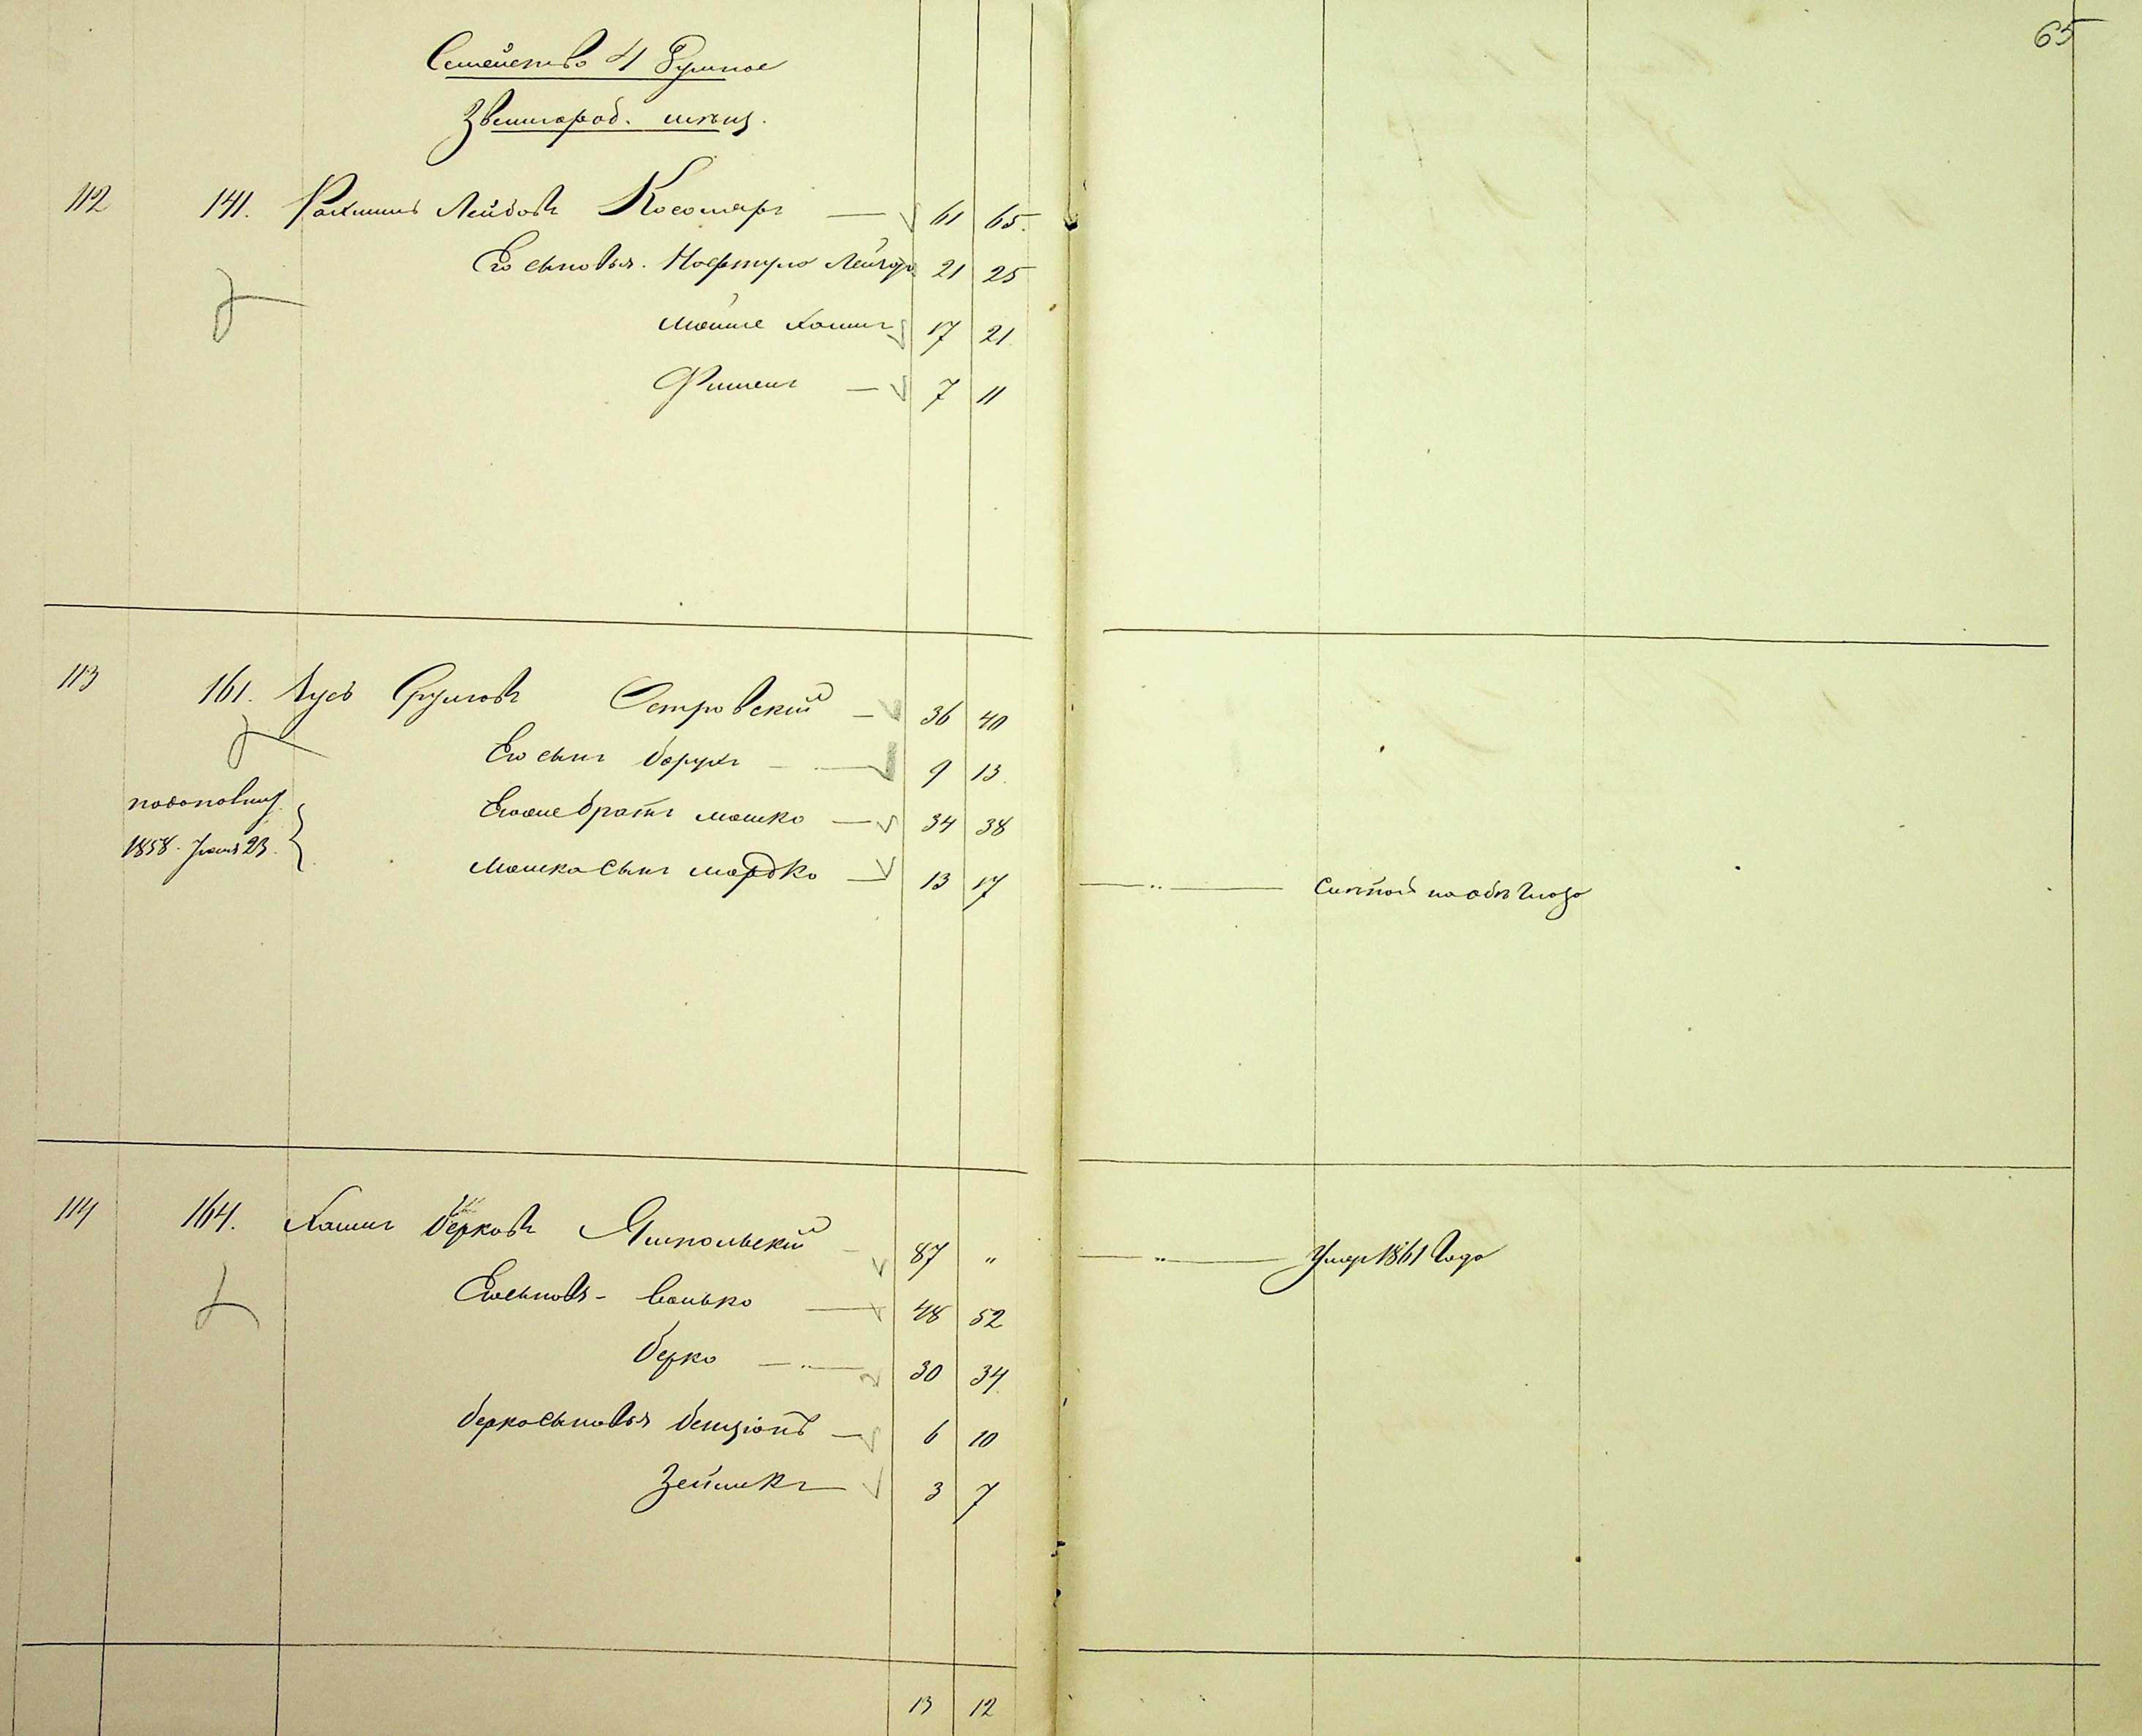 65
Семейство 4 Душное
Звенигород. мѣщ.
112 141. Рахмиль Лейбовъ — 61 65.
Его сыновья. Нафтула Лейзоръ 21 25
Мошке Хаимъ 17 21.
Фишель — 7 11
113 161. Зусь Сруловъ Островскій — 36 40
Его сынъ Борухъ — 9 13.
Его же братъ Мошко — 34 38
1858. 23.
Мошка сынъ Мордко — 13 17 — " —
114 164. Хаимъ Берковъ Ямпольскій — 87 " — " — Умер 1861 года
Его сынов. - Волько — 48 52
Берко — " — 30 34
Берка сыновья Бенціонъ — 6 10
Зейликъ — 3 7
13 12